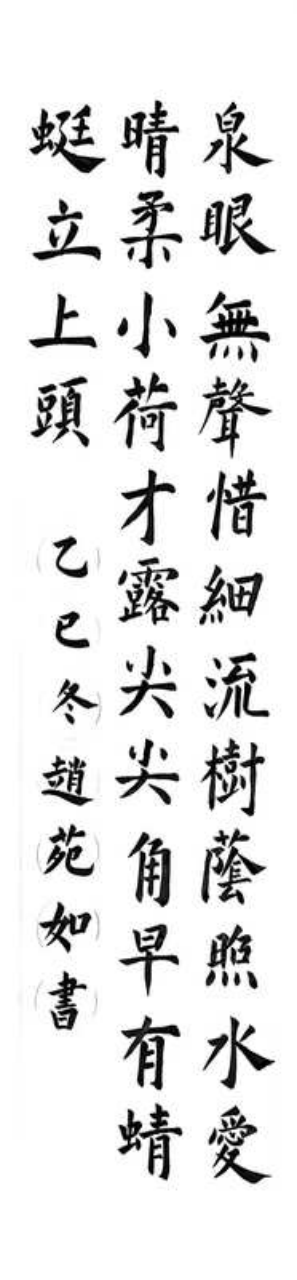 泉眼無聲惜細流樹蔭照水愛
晴柔小荷才露尖尖角早有蜻
蜓立上頭
乙巳冬趙苑如書